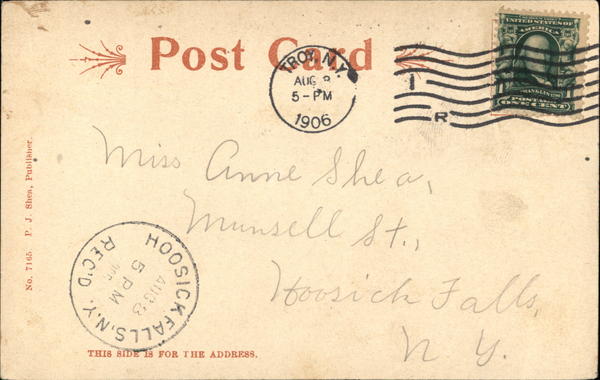 Post Card
TROY, N.Y.
AUG 8
5-PM
1906
1
R
UNITED STATES OF
AMERICA
FRANKLIN
POSTAGE
ONE CENT
Miss Anne Shea,
Munsell St.,
Hoosick Falls,
N Y.
HOOSICK FALLS, N.Y.
AUG 8
5 PM
REC'D.
No. 7165 P. J. Shea, Publisher.
THIS SIDE IS FOR THE ADDRESS.